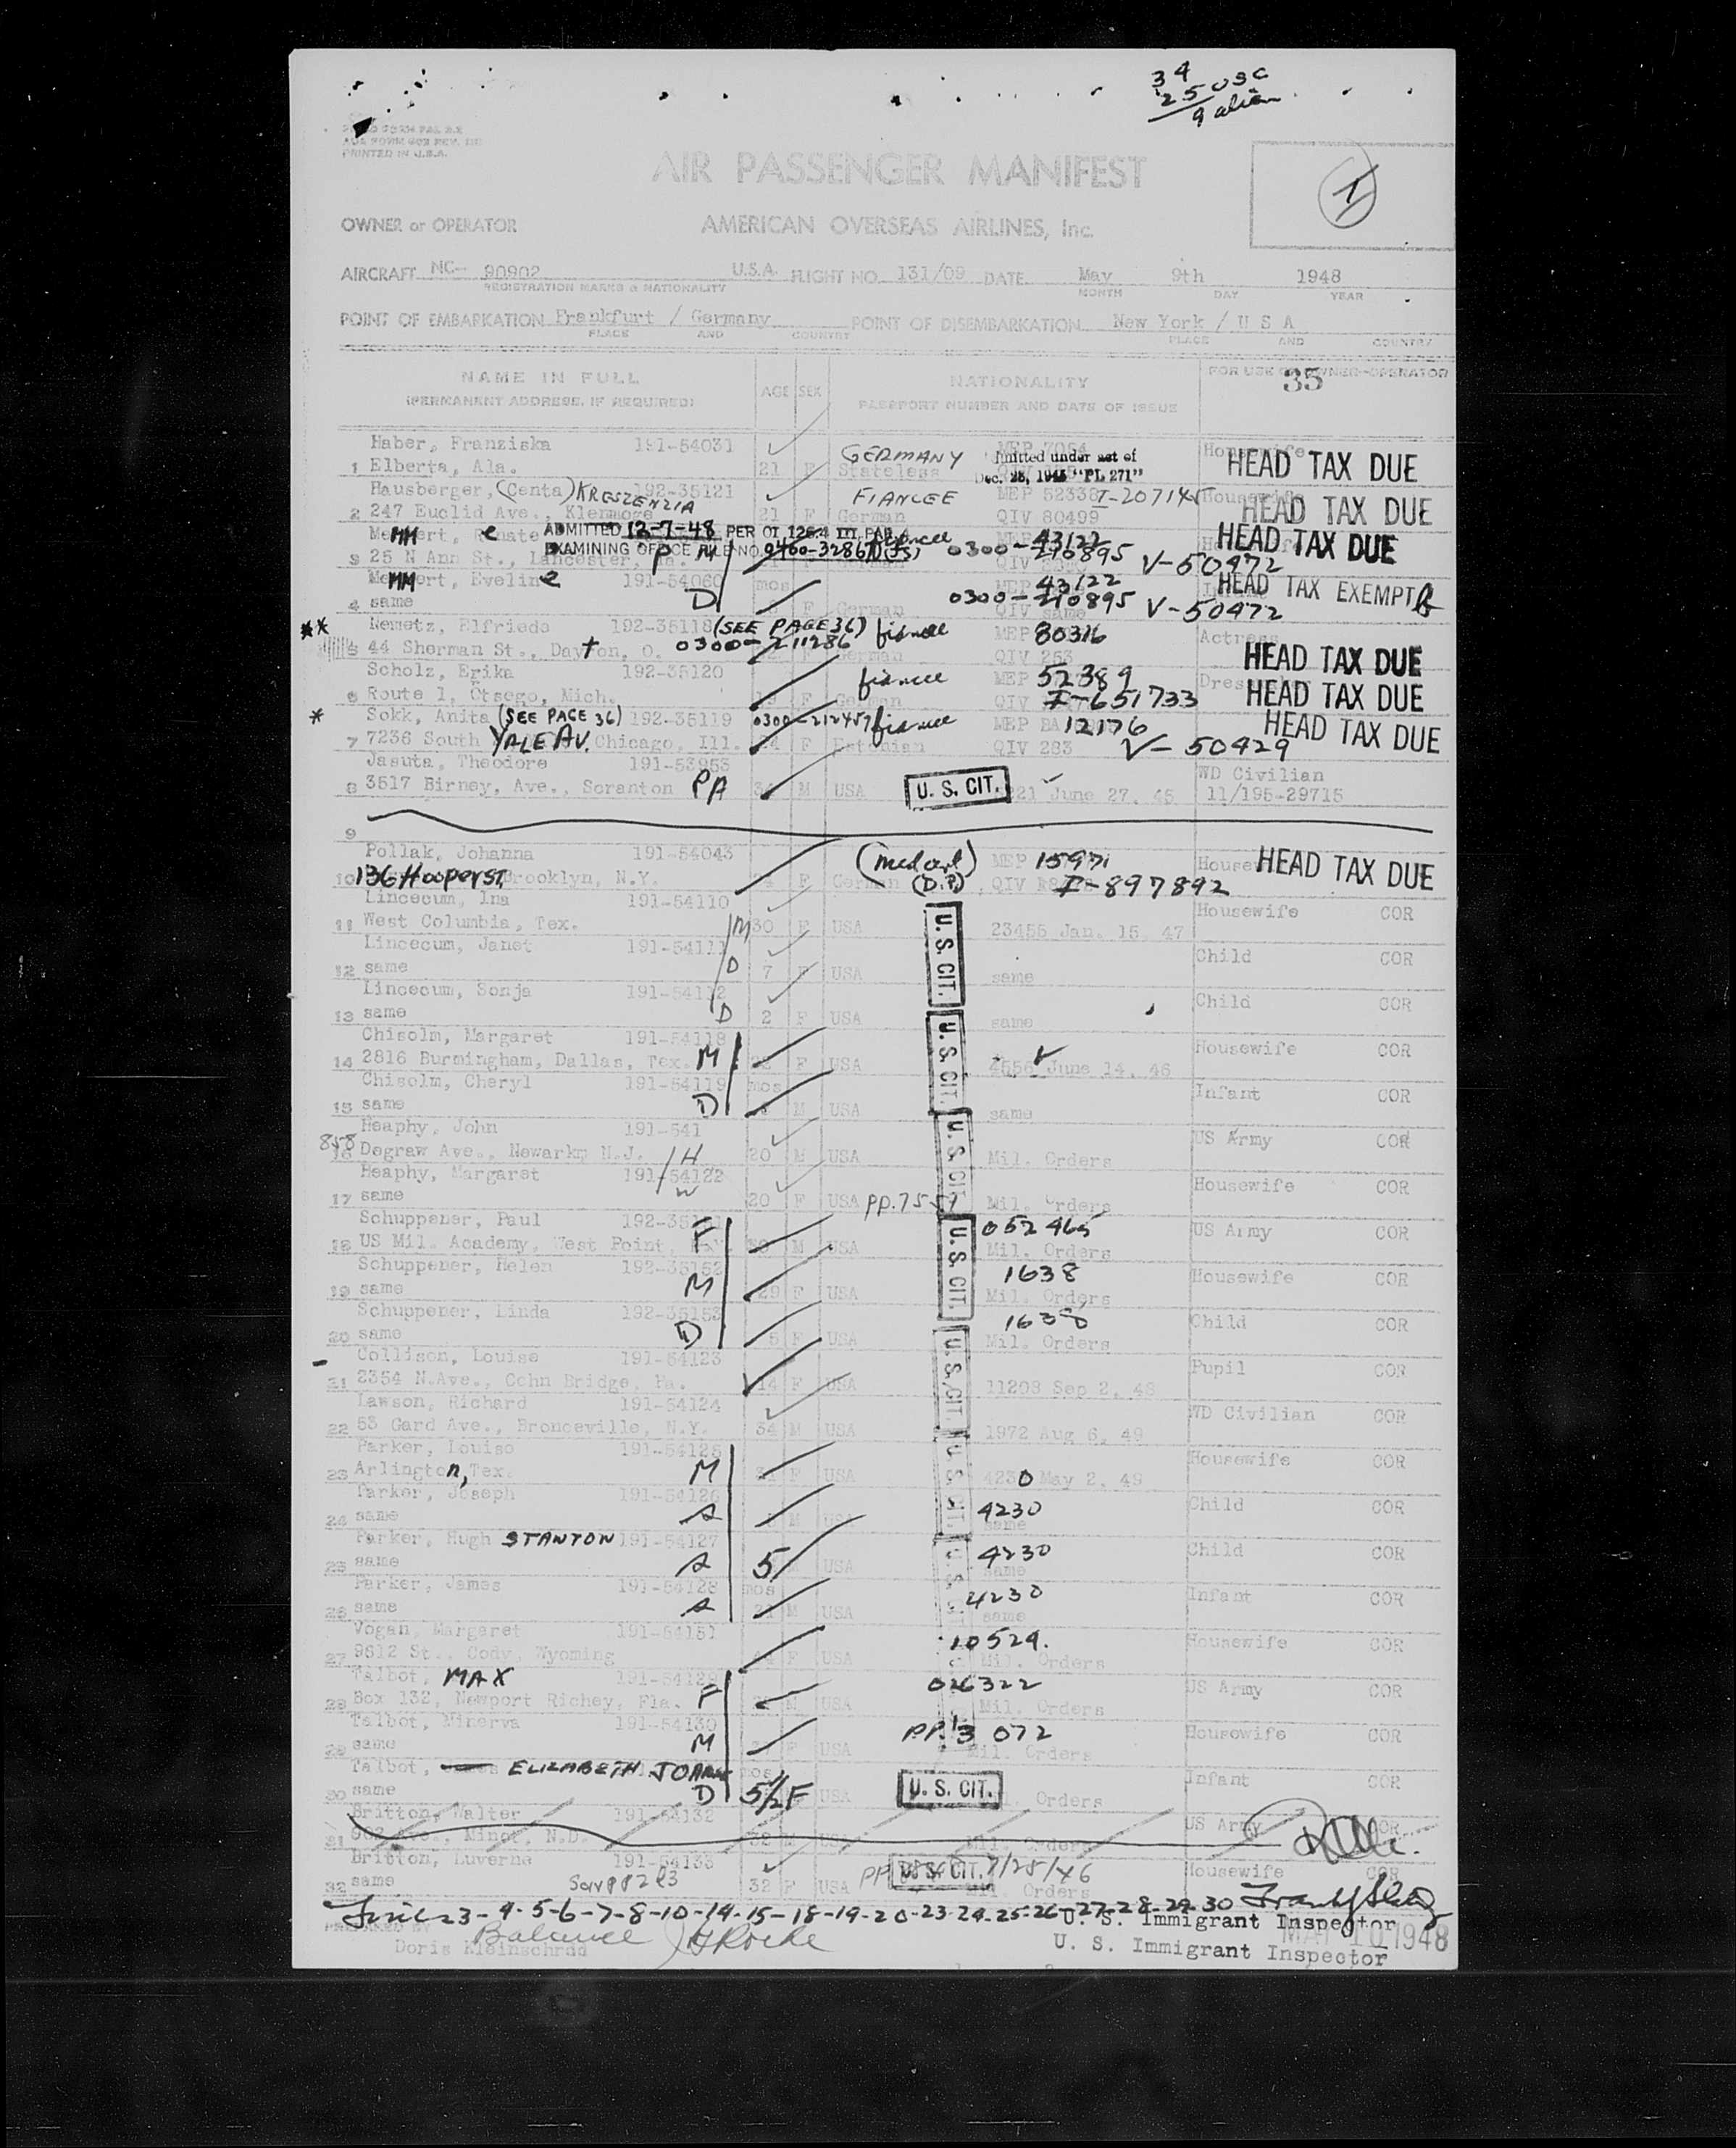 34
25 USC
9 alien
PRINTED IN U.S.A.
AIR PASSENGER MANIFEST
I
OWNER or OPERATOR AMERICAN OVERSEAS AIRLINES, Inc.
AIRCRAFT NC- 90902 U.S.A. FLIGHT NO. 131/09 DATE May 9th 1948
REGISTRATION MARKS & NATIONALITY MONTH DAY YEAR
POINT OF EMBARKATION Frankfurt / Germany POINT OF DISEMBARKATION New York / U S A
PLACE AND COUNTRY PLACE AND COUNTRY
NAME IN FULL AGE SEX NATIONALITY FOR USE OF OWNER-OPERATOR
(PERMANENT ADDRESS, IF REQUIRED) PASSPORT NUMBER AND DATE OF ISSUE 35
Haber, Franziska 191-54031 GERMANY MEP 7054 Housewife
1 Elberta, Ala. 21 F Stateless admitted under act of Dec. 28, 1945 "PL 271" HEAD TAX DUE
Hausberger, (Centa) KRESZENZIA 192-35121 FIANCEE MEP 52338 I-207145 Housewife
2 247 Euclid Ave., Klenmore 21 F German QIV 80499 HEAD TAX DUE
MM e ADMITTED 12-7-48 PER OI 126.4 III PAR. fiancee 43122 HEAD TAX DUE
EXAMINING OFFICE FILE NO. 0400-32867 0300-210895 V-50972
3 25 N Ann St., Lancester, Pa. M
MM Eveline 191-54060 mos 43122 HEAD TAX EXEMPT
4 same D F German 0300-210895 QIV same V-50972
** Nemetz, Elfriede 192-35118 (SEE PAGE 36) fiancee MEP 80316 Actress
5 44 Sherman St., Dayton, O. 0300-211286 F German QIV 253 HEAD TAX DUE
Scholz, Erika 192-35120 fiancee MEP 52389
6 Route 1, Otsego, Mich. 19 F German QIV I-651733 HEAD TAX DUE
* Sokk, Anita (SEE PAGE 36) 192-35119 0300-212457 fiancee MEP 12176 HEAD TAX DUE
7 7236 South YALE AV. Chicago, Ill. 24 F Estonian QIV 283 V-50429
Jasuta, Theodore 191-53953 WD Civilian
8 3517 Birney, Ave., Scranton PA M USA U. S. CIT. June 27, 45 11/195-29715
9
Pollak, Johanna 191-54043 (Med cert) MEP 15971 HEAD TAX DUE
10 136 Hooper ST Brooklyn, N.Y. F German (D.P.) QIV I-897892
Lincecum, Ina 191-54110 Housewife COR
11 West Columbia, Tex. M 30 F USA U. S. CIT. 23455 Jan. 15, 47
Lincecum, Janet 191-54111 Child COR
12 same D 7 F USA same
Lincecum, Sonja 191-54112 Child COR
13 same D 2 F USA same
Chisolm, Margaret 191-54118 Housewife COR
14 2816 Burmingham, Dallas, Tex. M 22 F USA U. S. CIT. 4556 June 14, 46
Chisolm, Cheryl 191-54119 mos Infant COR
15 same D M USA same
Heaphy, John 191-541 US Army COR
16 858 Degraw Ave., Newarkm N.J. H 20 M USA U. S. CIT. Mil. Orders
Heaphy, Margaret 191-54122 Housewife COR
17 same W 20 F USA PP. Mil. Orders
Schuppener, Paul F 052465 US Army COR
18 US Mil. Academy, West Point, M USA U. S. CIT. Mil. Orders
Schuppener, Helen 192-35152 1638 Housewife COR
19 same M 29 F USA Mil. Orders
Schuppener, Linda 192-35153 1638 Child COR
20 same D 5 F USA Mil. Orders
Collison, Louise 191-54123 Pupil COR
21 2354 N.Ave., Cohn Bridge, Pa. 14 F USA U. S. CIT. 11208 Sep 2, 48
Lawson, Richard 191-54124 WD Civilian COR
22 53 Gard Ave., Bronceville, N.Y. 34 M USA 1972 Aug 6, 49
Parker, Louise 191-54125 Housewife COR
23 Arlington, Tex. M F USA U. S. CIT. 4230 May 2, 49
Parker, Joseph 191-54126 Child COR
24 same S M USA 4230 same
Parker, Hugh STANTON 191-54127 Child COR
25 same S 5 USA 4230 same
Parker, James 191-54128 mos Infant COR
26 same S 21 M USA 4230 same
Vogan, Margaret 191-54151 10529. Housewife COR
27 9612 St., Cody, Wyoming F USA Mil. Orders
Talbot, MAX 191-54129 026322 US Army COR
28 Box 132, Newport Richey, Fla. F M USA Mil. Orders
Talbot, Minerva 191-54130 PP. 13072 Housewife COR
29 same M F USA Mil. Orders
Talbot, ELIZABETH JOANN mos Infant COR
30 same D 5½ F USA U. S. CIT. Orders
Britton, Walter 191-54132 US Army COR
31 902 Ave., Minot, N.D. 32 M Mil. Orders
Britton, Luverne 191-54133 PP U.S. CIT. 7/25/46 Housewife COR
32 same 32 F USA Mil. Orders
Lines 3-4-5-6-7-8-10-14-15-18-19-20-23-24-25-26-27-28-29-30
U. S. Immigrant Inspector
Balance
Doris Kleinschrod U. S. Immigrant Inspector MAY 10 1948